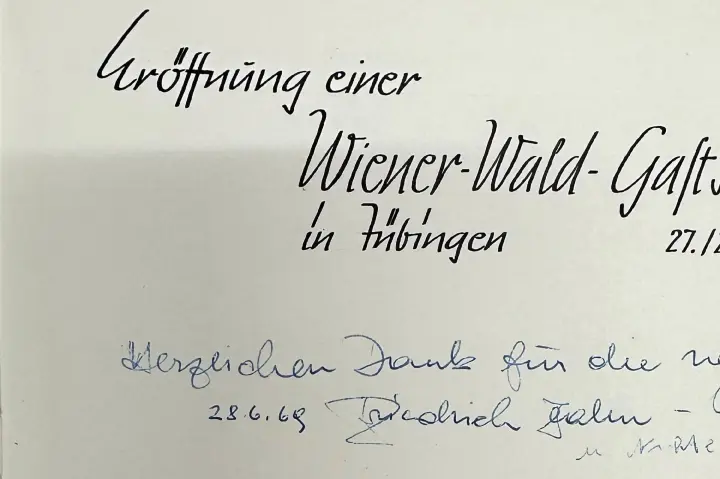 Eröffnung einer
Wiener-Wald-Gasts
in Tübingen 27./2
Herzlichen Dank für die ne
28.6.69 Friedrich Jahn -